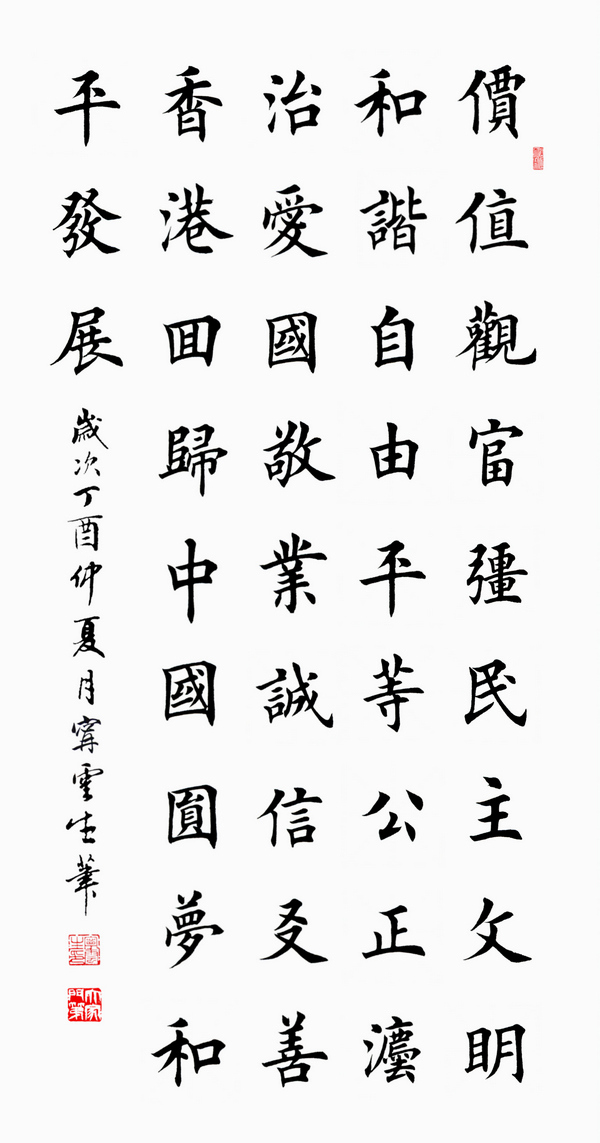 價值觀富彊民主文明
和諧自由平等公正灋
治愛國敬業誠信友善
香港囬歸中國圓夢和
平發展
歲次丁酉仲夏月甯雲生筆